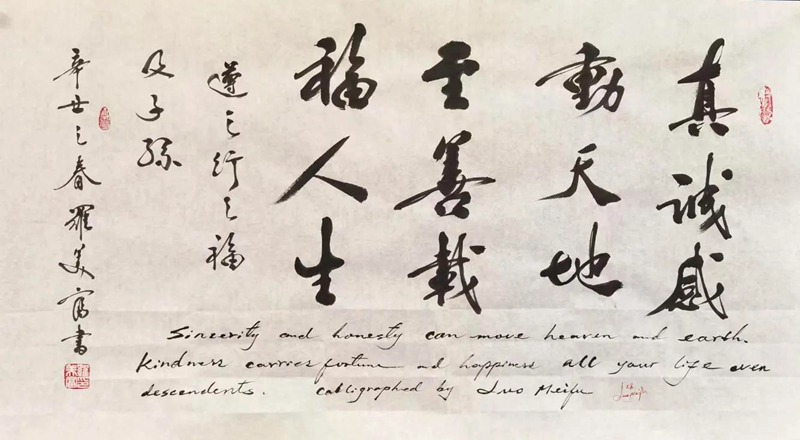 真诚感
動天地
至善載
福人生
遵之行之福
及子孫
辛丑之春羅美富書
Sincerity and honesty can move heaven and earth.
Kindness carries fortune and happiness all your life even
descendents. calligraphed by Luo Meifu